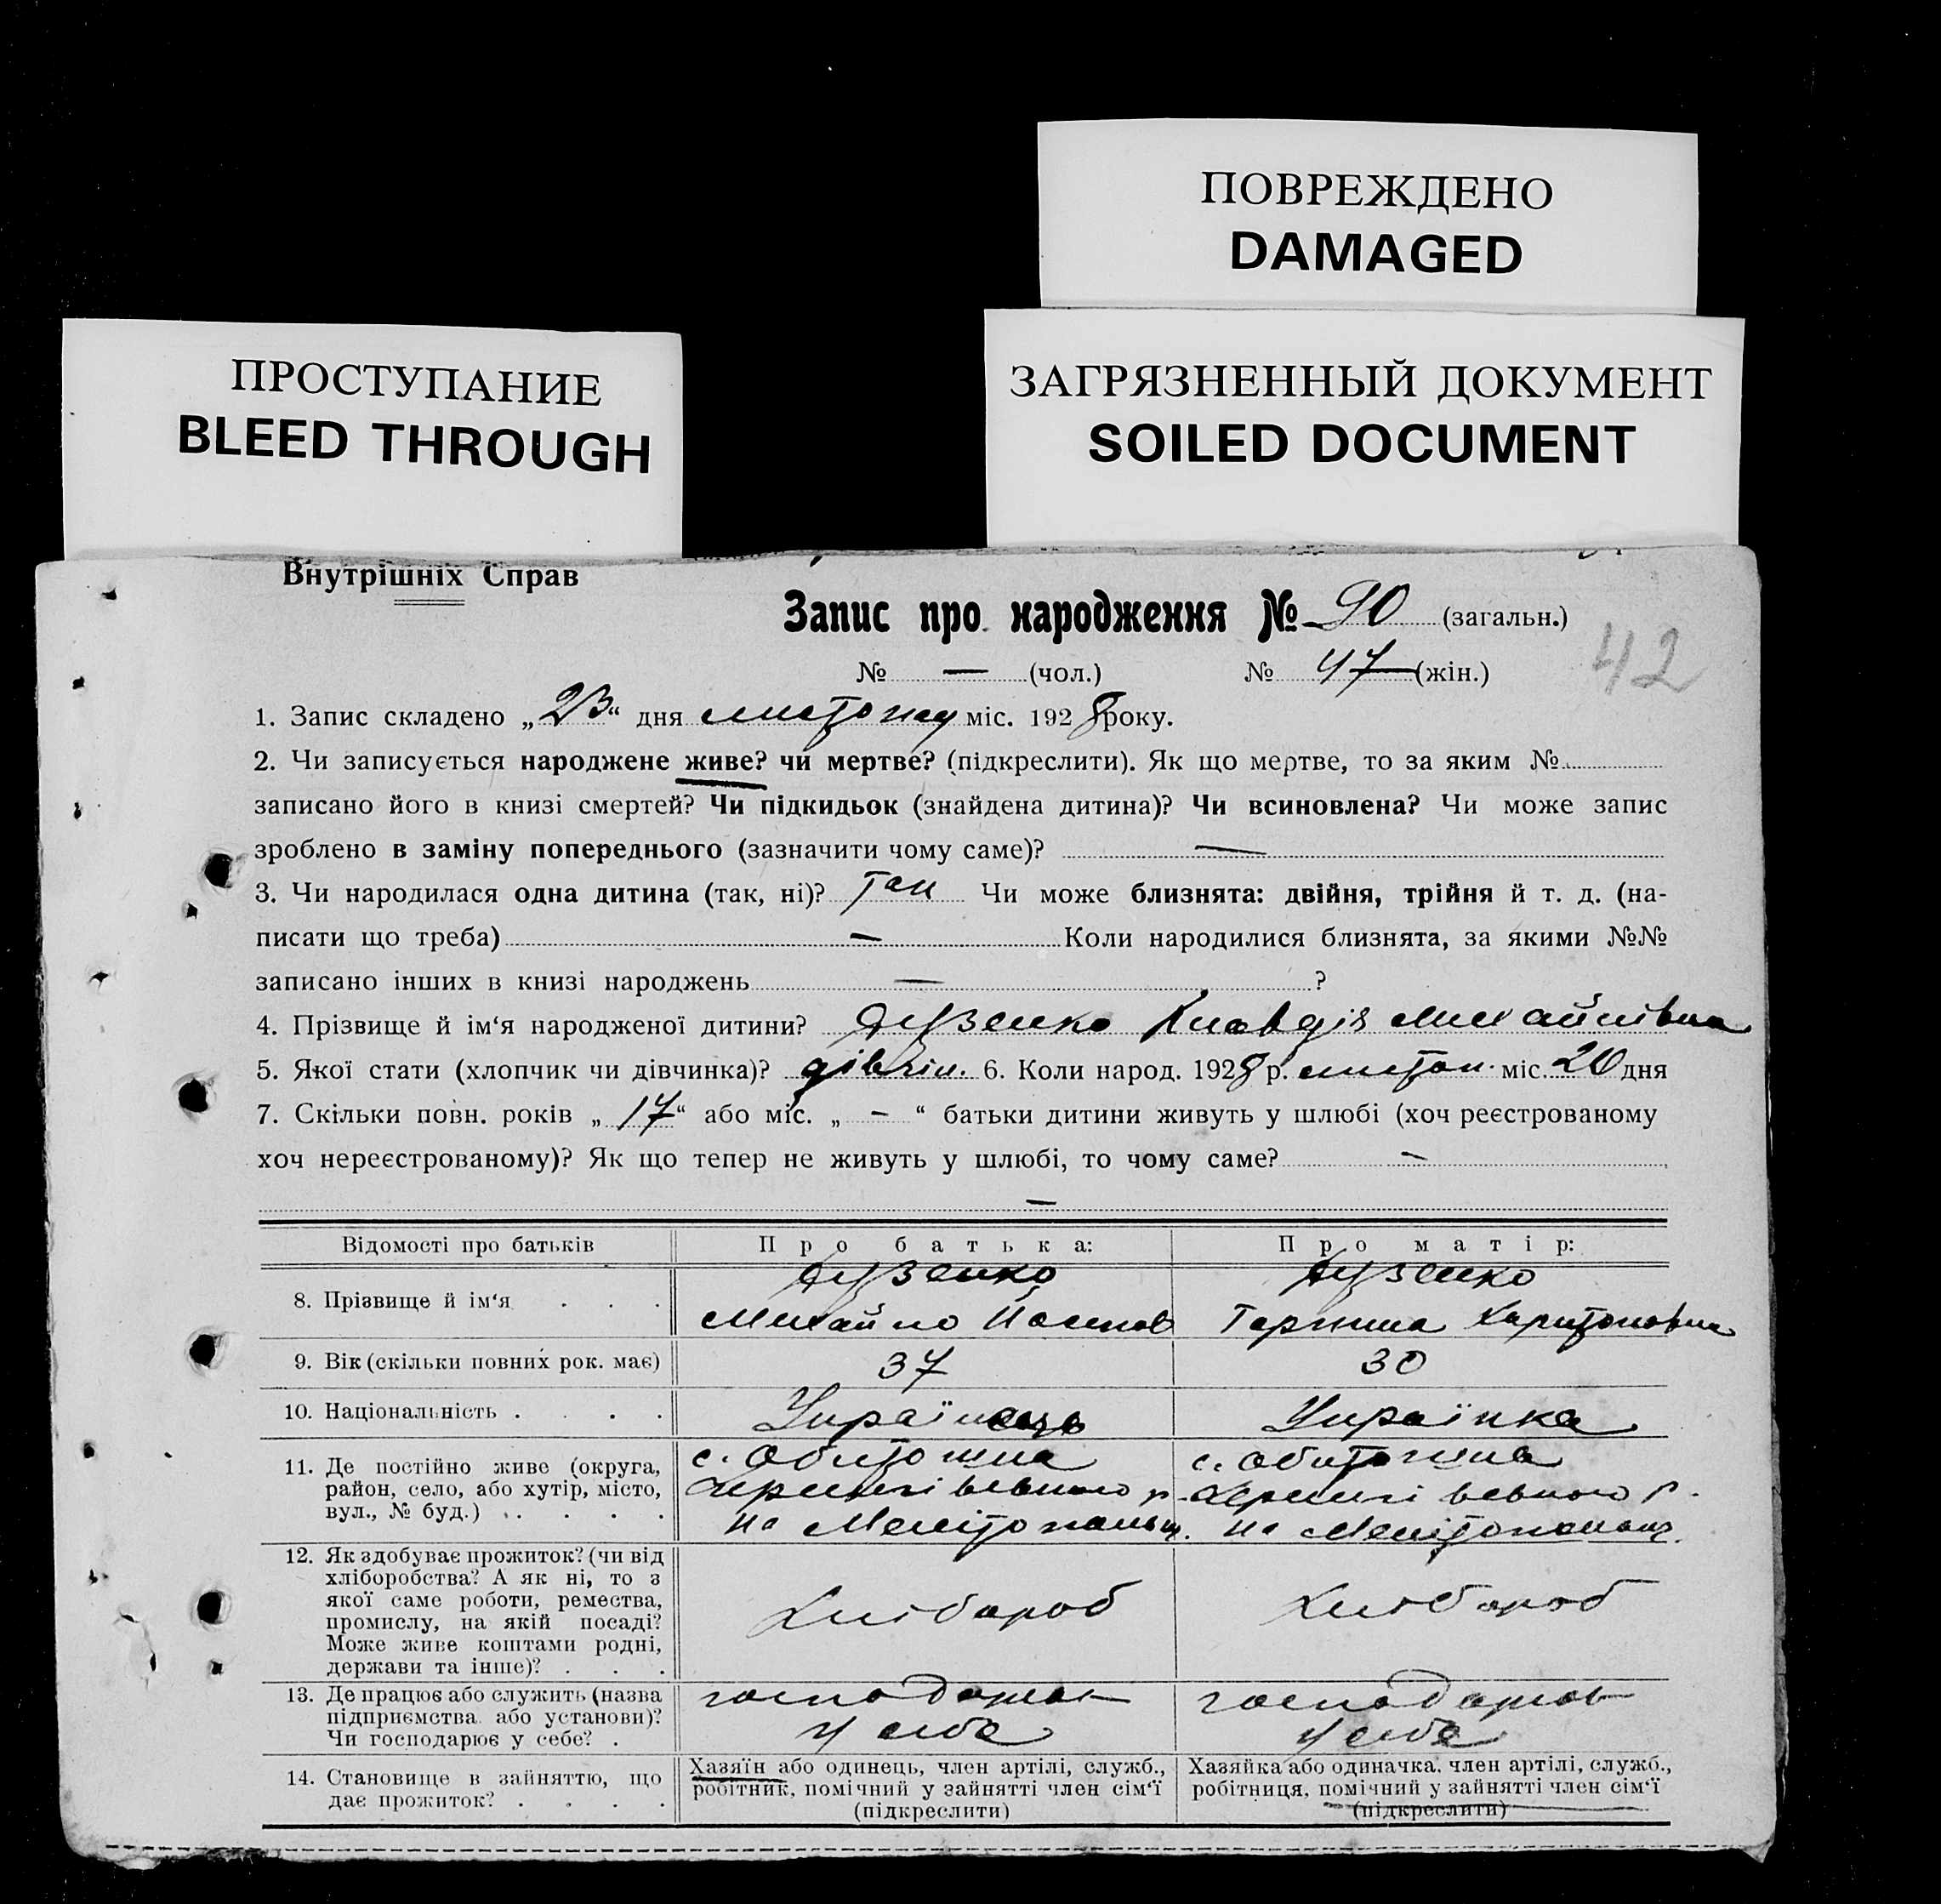 ПОВРЕЖДЕНО
DAMAGED
ПРОСТУПАНИЕ
BLEED THROUGH
ЗАГРЯЗНЕННЫЙ ДОКУМЕНТ
SOILED DOCUMENT
Внутрішніх Справ
Запис про народження № 90 (загальн.)
№ — (чол.) № 47 (жін.)
42
1. Запис складено „23“ дня листопад міс. 1928 року.
2. Чи записується народжене живе? чи мертве? (підкреслити). Як що мертве, то за яким №
записано його в книзі смертей? Чи підкидьок (знайдена дитина)? Чи всиновлена? Чи може запис
зроблено в заміну попереднього (зазначити чому саме)? —
3. Чи народилася одна дитина (так, ні)? так Чи може близнята: двійня, трійня й т. д. (на-
писати що треба) — Коли народилися близнята, за якими №№
записано інших в книзі народжень — ?
4. Прізвище й ім‘я народженої дитини? Клавдія Михайлівна
5. Якої стати (хлопчик чи дівчинка)? дівчин. 6. Коли народ. 1928 р. листоп. міс. 20 дня
7. Скільки повн. років „17“ або міс. „ — “ батьки дитини живуть у шлюбі (хоч реєстрованому
хоч нереєстрованому)? Як що тепер не живуть у шлюбі, то чому саме? —
—
Відомості про батьків Про батька: Про матір:
8. Прізвище й ім‘я
Михайло Йосипов Харитоновна
9. Вік (скільки повних рок. має) 37 30
10. Національність Українець Українка
11. Де постійно живе (округа, с. Обиточна с. Обиточна
район, село, або хутір, місто, р. р.
вул., № буд.) на Мелітопольщ. на Мелітопольщ.
12. Як здобуває прожиток? (чи від
хліборобства? А як ні, то з
якої саме роботи, ремества, Хлібороб Хлібороб
промислу, на якій посаді?
Може живе коштами родні,
держави та інше)?
13. Де працює або служить (назва господарює господарює
підприємства або установи)? у себе у себе
Чи господарює у себе?
14. Становище в зайняттю, що Хазяїн або одинець, член артілі, служб., Хазяйка або одиначка, член артілі, служб.,
дає прожиток? робітник, помічний у зайнятті член сім‘ї робітниця, помічний у зайнятті член сім‘ї
(підкреслити) (підкреслити)